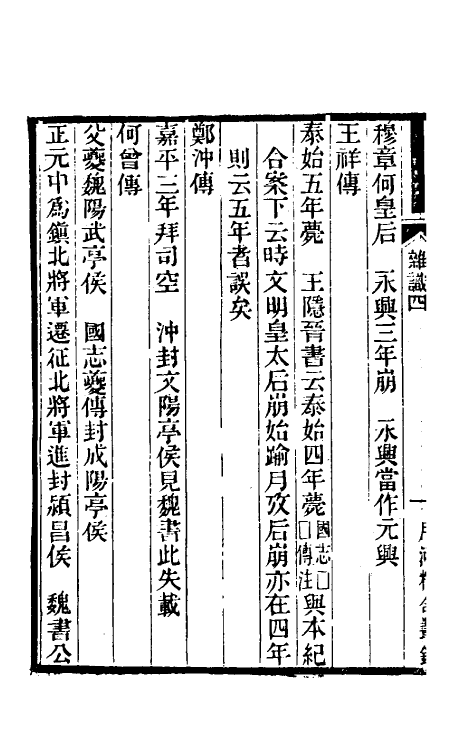 雜識四
穆章何皇后　永興三年崩　永興當作元興
王祥傳
泰始五年薨　王隱晉書云泰始四年薨國志□□傳注與本紀
合案下云時文明皇太后崩始踰月攷后崩亦在四年
則云五年者誤矣
鄭沖傳
嘉平三年拜司空　沖封文陽亭侯見魏書此失載
何曾傳
父夔魏陽武亭侯　國志夔傳封成陽亭侯
正元中爲鎭北將軍遷征北將軍進封潁昌侯　魏書公